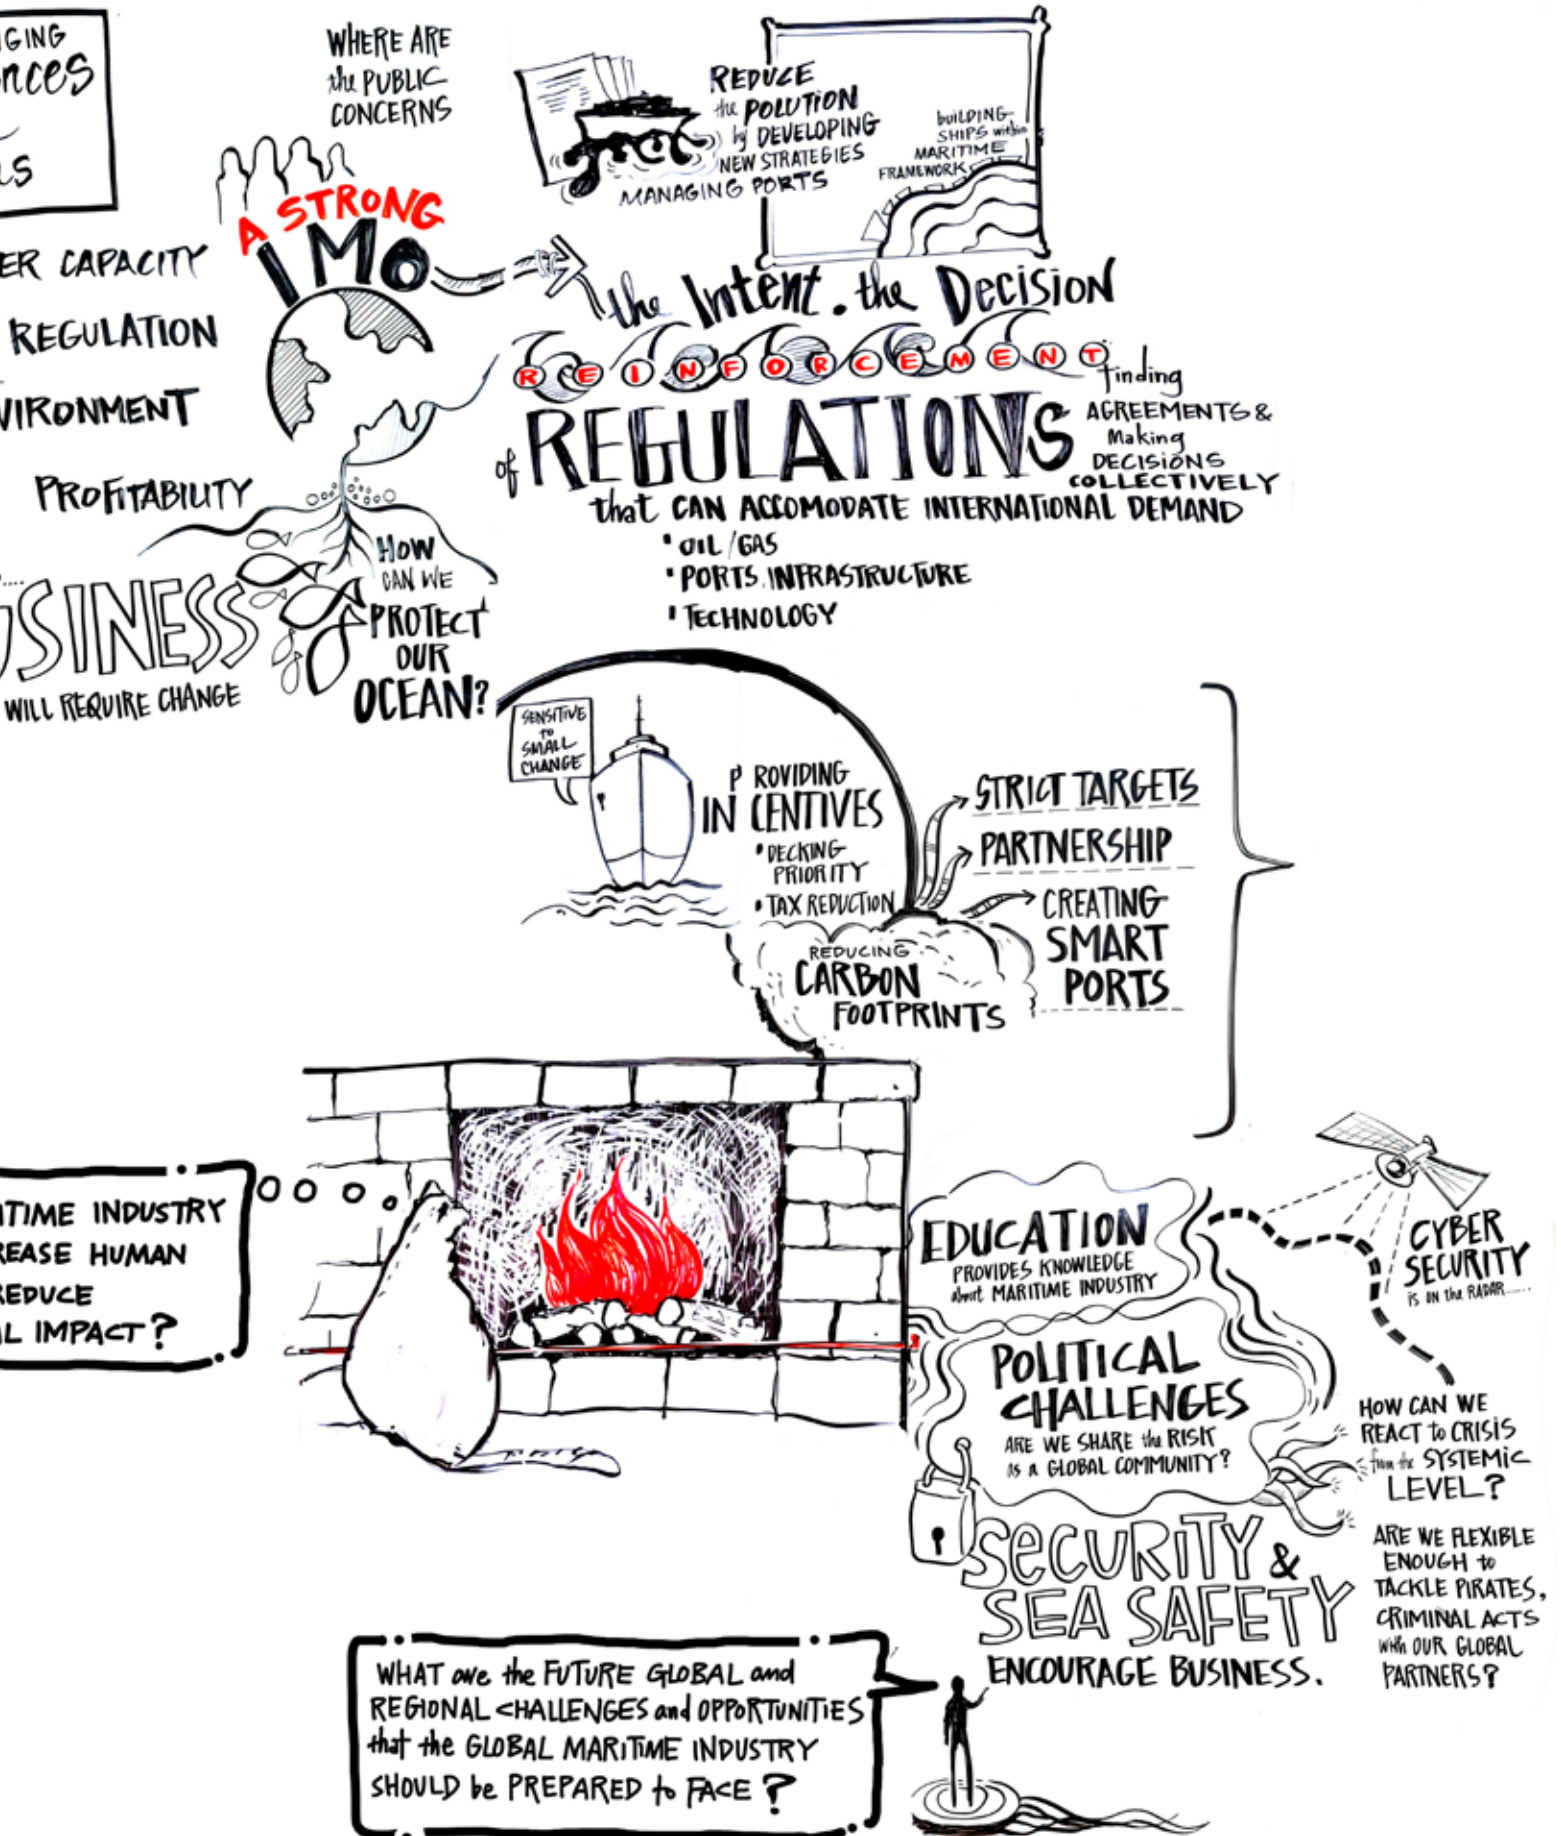 WHERE ARE
the PUBLIC
CONCERNS
A STRONG
IMO
ER CAPACITY
REGULATION
VIRONMENT
PROFITABILITY
WILL REQUIRE CHANGE
HOW
CAN WE
PROTECT
OUR
OCEAN?
REDUCE
the POLUTION
by DEVELOPING
NEW STRATEGIES
MANAGING PORTS
buILDING
SHIPS within
MARITIME
FRAMEWORK
the Intent. the Decision
REINFORCEMENT
of REGULATIONS
finding
AGREEMENTS &
Making
DECISIONS
COLLECTIVELY
that CAN ACCOMODATE INTERNATIONAL DEMAND
• OIL/GAS
• PORTS. INFRASTRUCTURE
• TECHNOLOGY
SENSITIVE
TO
SMALL
CHANGE
PROVIDING
INCENTIVES
• DECKING
PRIORITY
• TAX REDUCTION
STRICT TARGETS
PARTNERSHIP
CREATING
SMART
PORTS
REDUCING
CARBON
FOOTPRINTS
TIME INDUSTRY
REASE HUMAN
REDUCE
L IMPACT?
EDUCATION
PROVIDES KNOWLEDGE
about MARITIME INDUSTRY
CYBER
SECURITY
IS ON the RADAR......
POLITICAL
CHALLENGES
ARE WE SHARE the RISK
as a GLOBAL COMMUNITY?
HOW CAN WE
REACT to CRISIS
from the SYSTEMIC
LEVEL?
SECURITY &
SEA SAFETY
ENCOURAGE BUSINESS.
ARE WE FLEXIBLE
ENOUGH to
TACKLE PIRATES,
CRIMINAL ACTS
with OUR GLOBAL
PARTNERS?
WHAT are the FUTURE GLOBAL and
REGIONAL CHALLENGES and OPPORTUNITIES
that the GLOBAL MARITIME INDUSTRY
SHOULD be PREPARED to FACE?